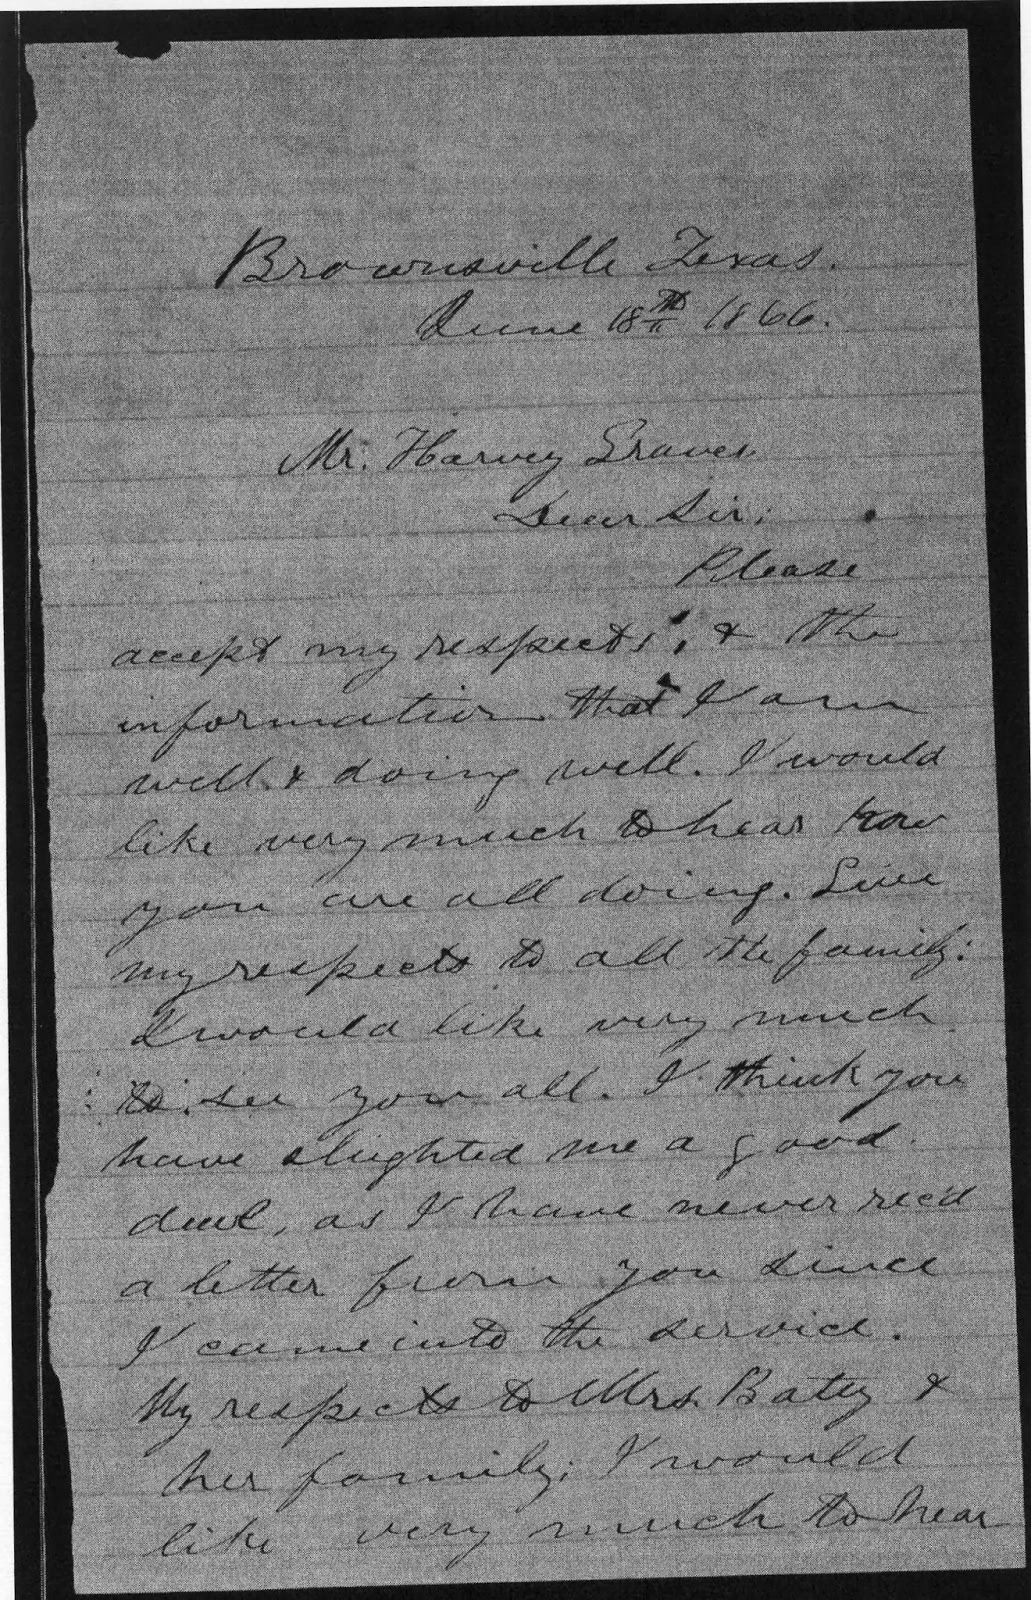 Brownsville Texas.
June 18th 1866.
Mr. Harvey Graves.
Dear Sir;
Please
accept my respects; & the
information that I am
well & doing well. I would
like very much to hear how
you are all doing. Give
my respects to all the family:
I would like very much
to see you all. I think you
have slighted me a good
deal, as I have never rec'd
a letter from you since
I came into the service.
My respects to Mrs. Batey &
her family; I would
like very much to hear